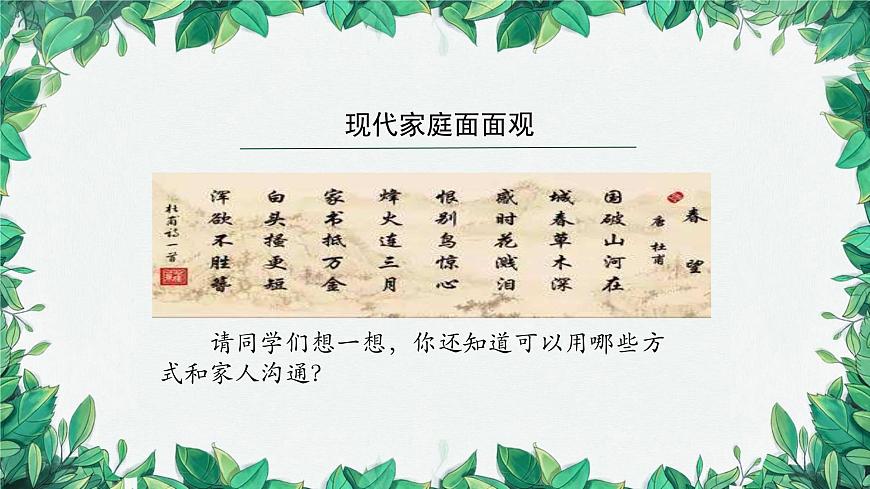 现代家庭面面观
春望
唐 杜甫
国破山河在
城春草木深
感时花溅泪
恨别鸟惊心
烽火连三月
家书抵万金
白头搔更短
浑欲不胜簪
杜甫诗一首
请同学们想一想，你还知道可以用哪些方
式和家人沟通？